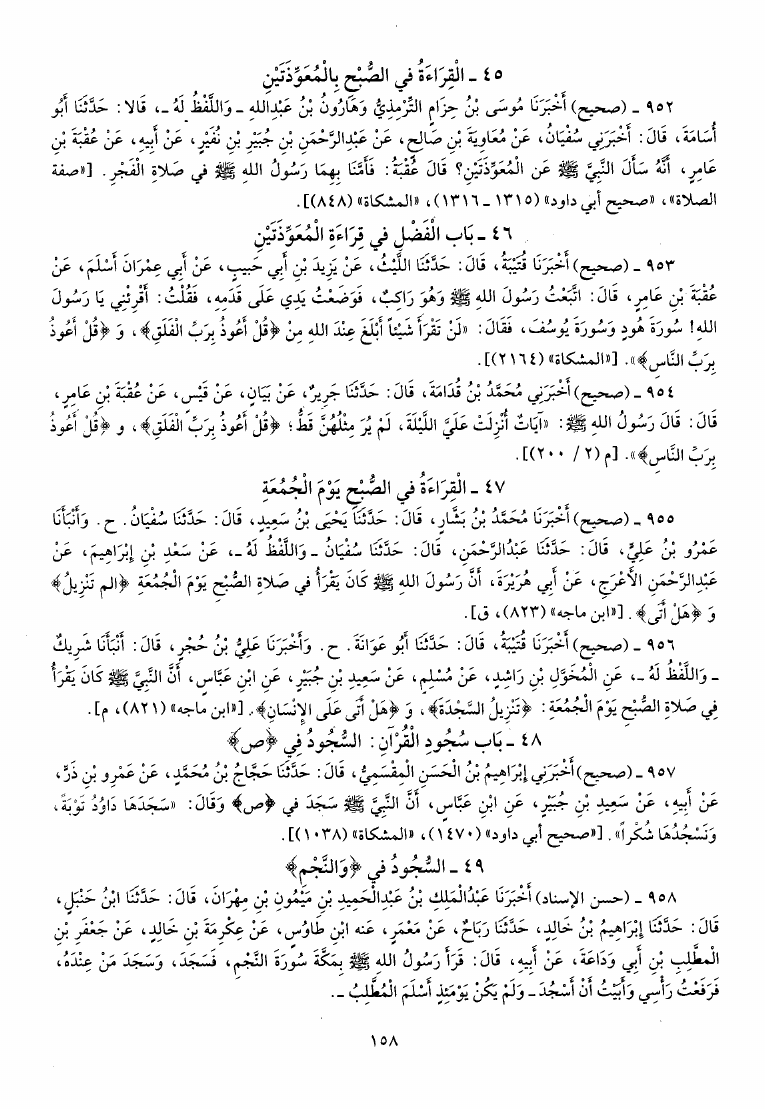 ٤٥ ـ الْقِرَاءَةُ في الصُّبْحِ بِالْمُعَوِّذَتَيْنِ
٩٥٢ ـ (صحيح) أَخْبَرَنَا مُوسَى بْنُ حِزَامٍ التِّرْمِذِيُّ وَهَارُونُ بْنُ عَبْدِاللهِ ـ وَاللَّفْظُ لَهُ ـ، قَالا: حَدَّثَنَا أَبُو
أُسَامَةَ، قَالَ: أَخْبَرَنِي سُفْيَانُ، عَنْ مُعَاوِيَةَ بْنِ صَالِحٍ، عَنْ عَبْدِالرَّحْمَنِ بْنِ جُبَيْرِ بْنِ نُفَيْرٍ، عَنْ أَبِيهِ، عَنْ عُقْبَةَ بْنِ
عَامِرٍ، أَنَّهُ سَأَلَ النَّبِيَّ ﷺ عَنِ الْمُعَوِّذَتَيْنِ؟ قَالَ عُقْبَةُ: فَأَمَّنَا بِهِمَا رَسُولُ اللهِ ﷺ في صَلَاةِ الْفَجْرِ. [«صفة
الصلاة»، «صحيح أبي داود» (١٣١٥ ـ ١٣١٦)، «المشكاة» (٨٤٨)].
٤٦ ـ بَاب الْفَضْلِ في قِرَاءَةِ الْمُعَوِّذَتَيْنِ
٩٥٣ ـ (صحيح) أَخْبَرَنَا قُتَيْبَةُ، قَالَ: حَدَّثَنَا اللَّيْثُ، عَنْ يَزِيدَ بْنِ أَبي حَبِيبٍ، عَنْ أَبي عِمْرَانَ أَسْلَمَ، عَنْ
عُقْبَةَ بْنِ عَامِرٍ، قَالَ: اتَّبَعْتُ رَسُولَ اللهِ ﷺ وَهُوَ رَاكِبٌ، فَوَضَعْتُ يَدِي عَلَى قَدَمِهِ، فَقُلْتُ: أَقْرِئْنِي يَا رَسُولَ
اللهِ! سُورَةَ هُودٍ وَسُورَةَ يُوسُفَ، فَقَالَ: «لَنْ تَقْرَأَ شَيْئاً أَبْلَغَ عِنْدَ اللهِ مِنْ ﴿قُلْ أَعُوذُ بِرَبِّ الْفَلَقِ﴾، وَ ﴿قُلْ أَعُوذُ
بِرَبِّ النَّاسِ﴾». [«المشكاة» (٢١٦٤)].
٩٥٤ ـ (صحيح) أَخْبَرَنِي مُحَمَّدُ بْنُ قُدَامَةَ، قَالَ: حَدَّثَنَا جَرِيرٌ، عَنْ بَيَانٍ، عَنْ قَيْسٍ، عَنْ عُقْبَةَ بْنِ عَامِرٍ،
قَالَ: قَالَ رَسُولُ اللهِ ﷺ: «آيَاتٌ أُنْزِلَتْ عَلَيَّ اللَّيْلَةَ، لَمْ يُرَ مِثْلُهُنَّ قَطُّ؛ ﴿قُلْ أَعُوذُ بِرَبِّ الْفَلَقِ﴾، و ﴿قُلْ أَعُوذُ
بِرَبِّ النَّاسِ﴾». [م (٢ / ٢٠٠)].
٤٧ ـ الْقِرَاءَةُ في الصُّبْحِ يَوْمَ الْجُمُعَةِ
٩٥٥ ـ (صحيح) أَخْبَرَنَا مُحَمَّدُ بْنُ بَشَّارٍ، قَالَ: حَدَّثَنَا يَحْيَى بْنُ سَعِيدٍ، قَالَ: حَدَّثَنَا سُفْيَانُ. ح. وَأَنْبَأَنَا
عَمْرُو بْنُ عَلِيٍّ، قَالَ: حَدَّثَنَا عَبْدُالرَّحْمَنِ، قَالَ: حَدَّثَنَا سُفْيَانُ ـ وَاللَّفْظُ لَهُ ـ، عَنْ سَعْدِ بْنِ إِبْرَاهِيمَ، عَنْ
عَبْدِالرَّحْمَنِ الأَعْرَجِ، عَنْ أَبي هُرَيْرَةَ، أَنَّ رَسُولَ اللهِ ﷺ كَانَ يَقْرَأُ في صَلَاةِ الصُّبْحِ يَوْمَ الْجُمُعَةِ ﴿الم تَنْزِيلُ﴾
وَ ﴿هَلْ أَتَى﴾. [«ابن ماجه» (٨٢٣)، ق].
٩٥٦ ـ (صحيح) أَخْبَرَنَا قُتَيْبَةُ، قَالَ: حَدَّثَنَا أَبُو عَوَانَةَ. ح. وَأَخْبَرَنَا عَلِيُّ بْنُ حُجْرٍ، قَالَ: أَنْبَأَنَا شَرِيكٌ
ـ وَاللَّفْظُ لَهُ ـ، عَنِ الْمُخَوَّلِ بْنِ رَاشِدٍ، عَنْ مُسْلِمٍ، عَنْ سَعِيدِ بْنِ جُبَيْرٍ، عَنِ ابْنِ عَبَّاسٍ، أَنَّ النَّبِيَّ ﷺ كَانَ يَقْرَأُ
في صَلَاةِ الصُّبْحِ يَوْمَ الْجُمُعَةِ: ﴿تَنْزِيلُ السَّجْدَةَ﴾، وَ ﴿هَلْ أَتَى عَلَى الإِنْسَانِ﴾. [«ابن ماجه» (٨٢١)، م].
٤٨ ـ بَاب سُجُودِ الْقُرْآنِ: السُّجُودُ في ﴿ص﴾
٩٥٧ ـ (صحيح) أَخْبَرَنِي إِبْرَاهِيمُ بْنُ الْحَسَنِ الْمِقْسَمِيُّ، قَالَ: حَدَّثَنَا حَجَّاجُ بْنُ مُحَمَّدٍ، عَنْ عَمْرِو بْنِ ذَرٍّ،
عَنْ أَبِيهِ، عَنْ سَعِيدِ بْنِ جُبَيْرٍ، عَنِ ابْنِ عَبَّاسٍ، أَنَّ النَّبِيَّ ﷺ سَجَدَ في ﴿ص﴾ وَقَالَ: «سَجَدَهَا دَاوُدُ تَوْبَةً،
وَنَسْجُدُهَا شُكْراً». [«صحيح أبي داود» (١٤٧٠)، «المشكاة» (١٠٣٨)].
٤٩ ـ السُّجُودُ في ﴿وَالنَّجْمِ﴾
٩٥٨ ـ (حسن الإسناد) أَخْبَرَنَا عَبْدُالْمَلِكِ بْنُ عَبْدِالْحَمِيدِ بْنِ مَيْمُونِ بْنِ مِهْرَانَ، قَالَ: حَدَّثَنَا ابْنُ حَنْبَلٍ،
قَالَ: حَدَّثَنَا إِبْرَاهِيمُ بْنُ خَالِدٍ، حَدَّثَنَا رَبَاحٌ، عَنْ مَعْمَرٍ، عَنه ابْنِ طَاوُسٍ، عَنْ عِكْرِمَةَ بْنِ خَالِدٍ، عَنْ جَعْفَرِ بْنِ
الْمطَّلِبِ بْنِ أَبي وَدَاعَةَ، عَنْ أَبِيهِ، قَالَ: قَرَأَ رَسُولُ اللهِ ﷺ بِمَكَّةَ سُورَةَ النَّجْمِ، فَسَجَدَ، وَسَجَدَ مَنْ عِنْدَهُ،
فَرَفَعْتُ رَأْسِي وَأَبَيْتُ أَنْ أَسْجُدَ ـ وَلَمْ يَكُنْ يَوْمَئِذٍ أَسْلَمَ الْمُطَّلِبُ ـ.
١٥٨